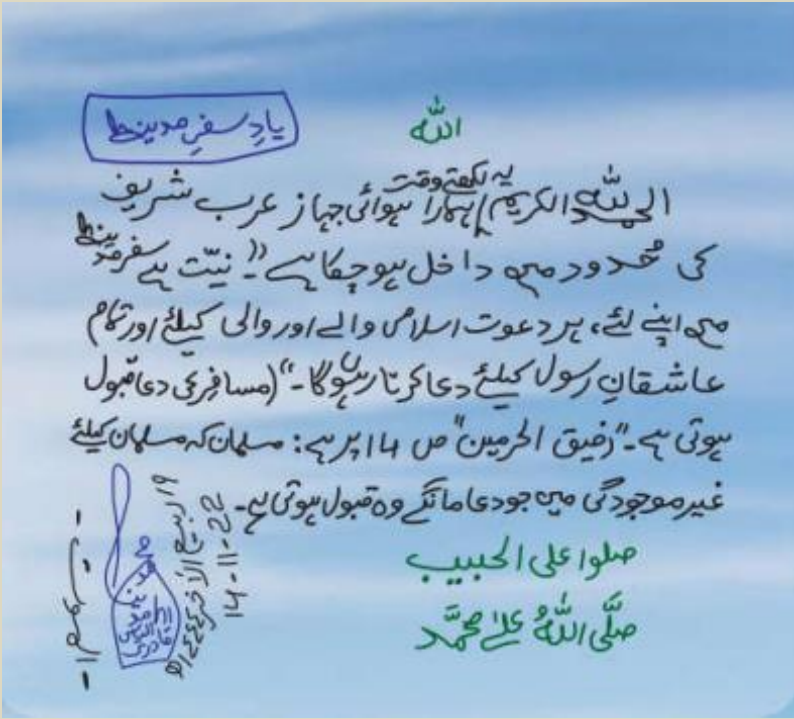 اللہ
یادِ سفرِ مدینہ
الحمدللہ الکریم! یہ لکھتے وقت ہمارا ہوائی جہاز عرب شریف
کی حُدود میں داخل ہو چکا ہے "نیّت ہے سفرِ مدینہ
میں اپنے لئے، ہر دعوت اسلامی والے اور والی کیلئے اور تمام
عاشقانِ رسول کیلئے دعا کرتا رہوں گا۔" (مسافر کی دعا قبول
ہوتی ہے۔ "رفیق الحرمین" ص ۱۴ پر ہے: مسلمان کہ مسلمان کیلئے
غیر موجودگی میں جو دعا مانگے وہ قبول ہوتی ہے۔
صلوا علی الحبیب
صلَّی اللہُ علیٰ محمَّد
۱۹ ربیع الآخر ۱۴۴۴ھ
14-11-22